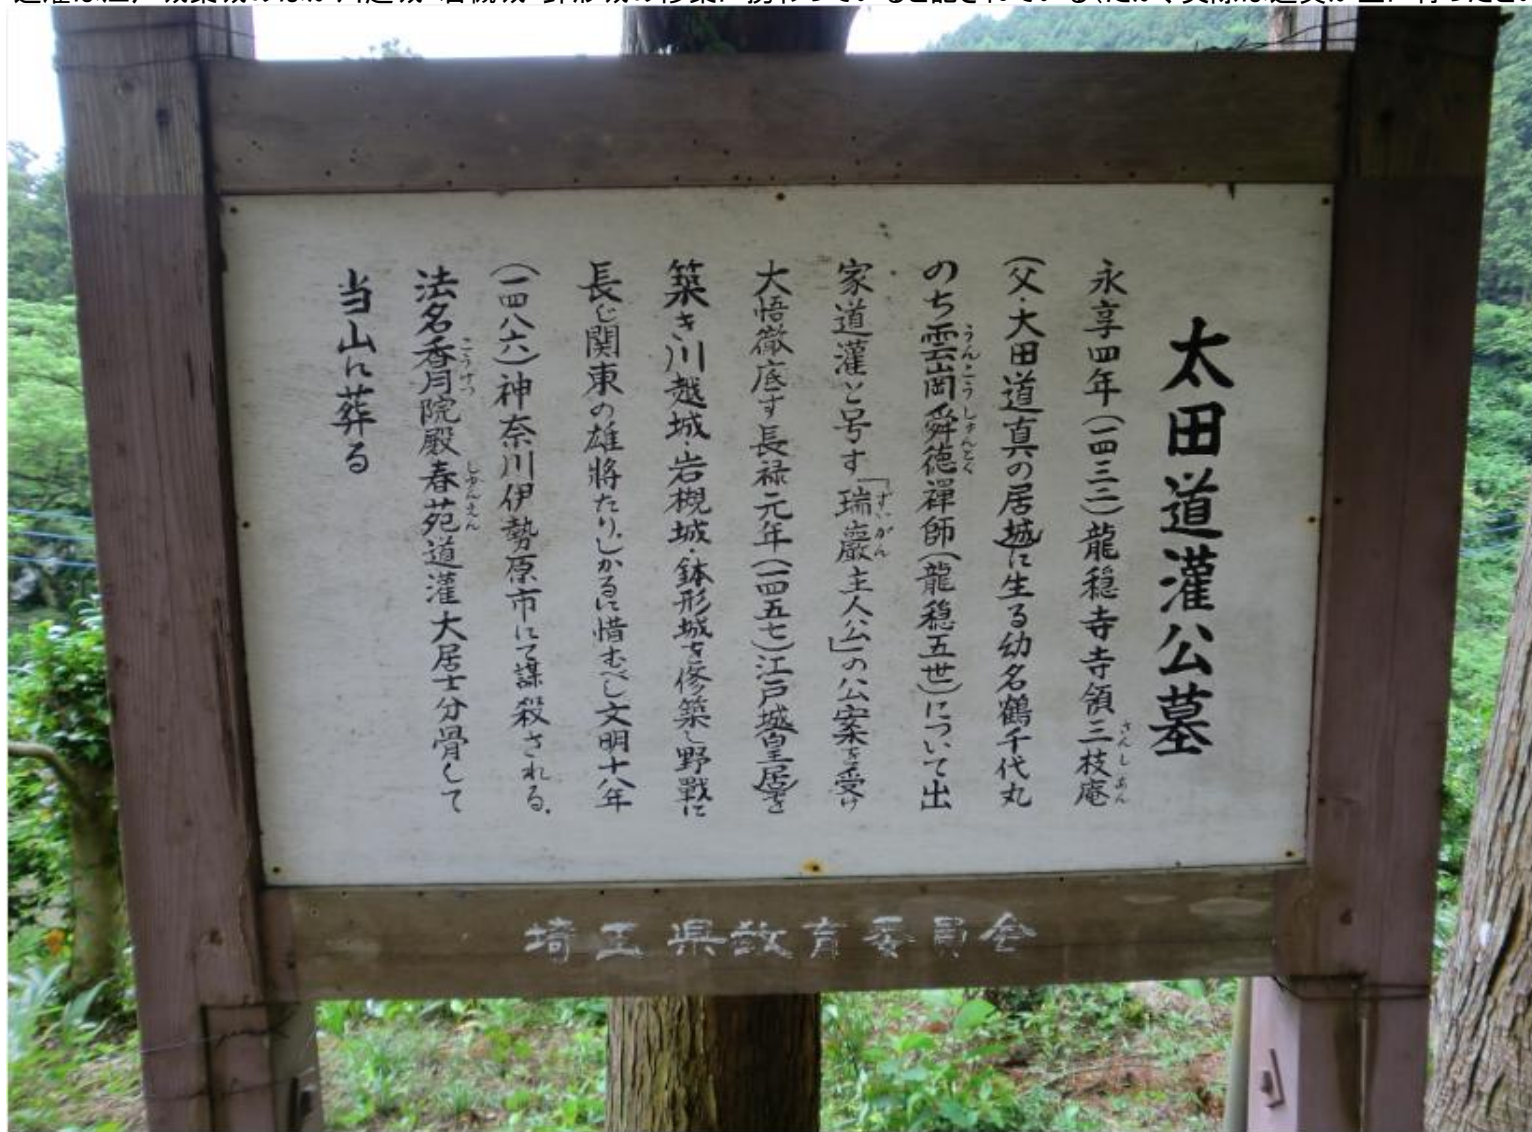 太田道灌公墓
永享四年(一四三二)龍穏寺寺領三枝庵
(父・大田道真の居城)に生る幼名鶴千代丸
のち雲岡舜徳禅師(龍穏五世)について出
家道灌と号す「瑞巖主人公」の公案を受け
大悟徹底す長禄元年(一四五七)江戸城(皇居)を
築き川越城・岩槻城・鉢形城を修築し野戰に
長じ関東の雄將たり。しかるに惜むべし文明十八年
(一四八六)神奈川伊勢原市にて謀殺される。
法名香月院殿春苑道灌大居士分骨して
当山に葬る
埼玉県教育委員会